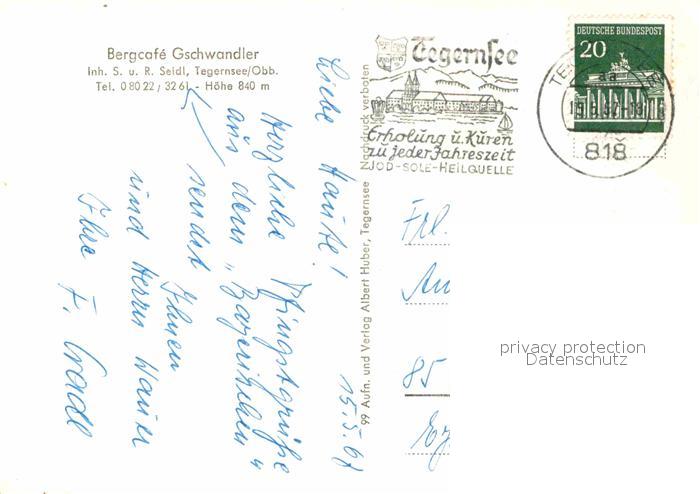 Bergcafé Gschwandler
Inh. S. u. R. Seidl, Tegernsee/Obb.
Tel. 0 80 22 / 32 61 - Höhe 840 m
Tegernsee
Erholung u. Kuren
zu jeder Jahreszeit
JOD-SOLE-HEILQUELLE
DEUTSCHE BUNDESPOST
20
818
Nachdruck verboten
99 Aufn. und Verlag Albert Huber, Tegernsee
15.5.67
Liebe
Herzliche Pfingstgrüße
aus dem „Bayrischen"
sendet Ihnen
und Herrn
Ihre F.
Frl.
85
privacy protection
Datenschutz